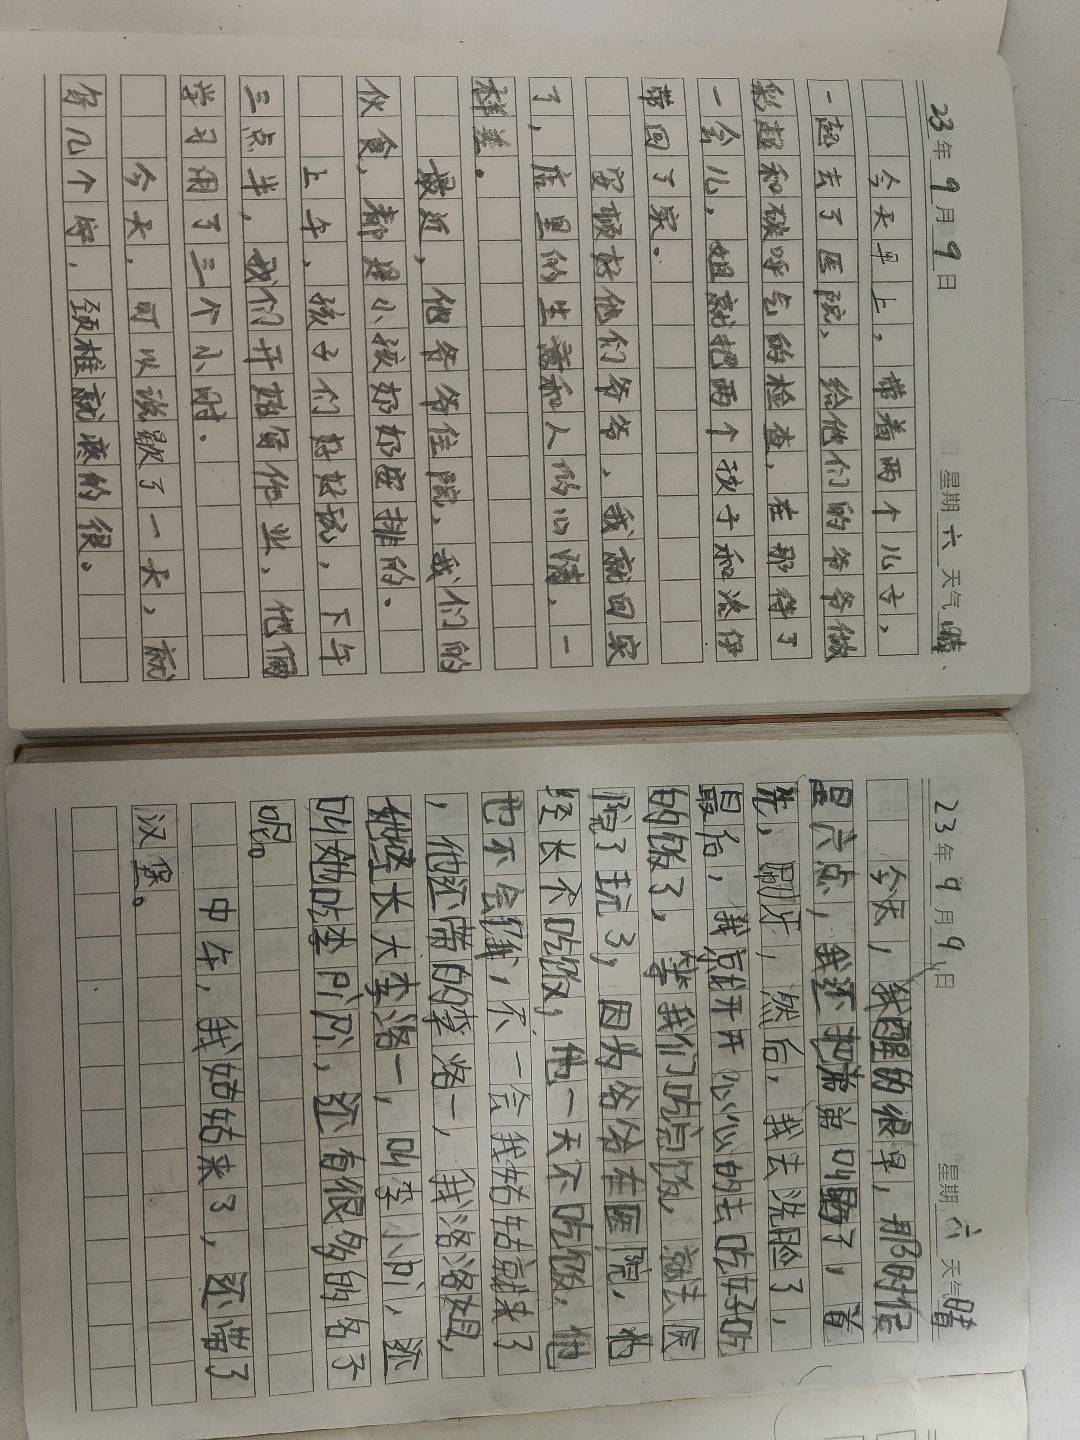 23年9月9日 星期六 天气晴、
今天早上，带着两个儿子，
一起去了医院、给他们的爷爷做
彩超和碳呼气的检查，在那待了
一会儿，姐就把两个孩子和洛伊
带回了家。
安顿好他们爷爷、我就回家
了，店里的生意和人的心情、一
样差。
最近，他爷爷住院、我们的
伙食，都是小孩奶奶安排的。
上午、孩子们好好玩，下午
三点半，我们开始写作业、他俩
学习用了三个小时.
今天，可以说歇了一天，就
写几个字，颈椎就疼的很。
23年9月9日 星期六 天气晴
今天，我醒的很早，那时候
是六点，我还把爸爸叫醒了，首
先，刷牙，然后，我去洗脸了，
最后，我就开开心心的去吃好吃
的饭了，等我们吃完饭，就去医
院了玩了，因为爷爷在医院，他
经长不吃饭，他一天不吃饭，他
也不会饿，不一会我姑姑就来了
，他还带的李洛一，我洛洛姐，
她经长大李洛一，叫李小小，还
叫她吃李爪爪，还有很多的名子
呢。
中午，我姑姑来了，还带了
汉堡。